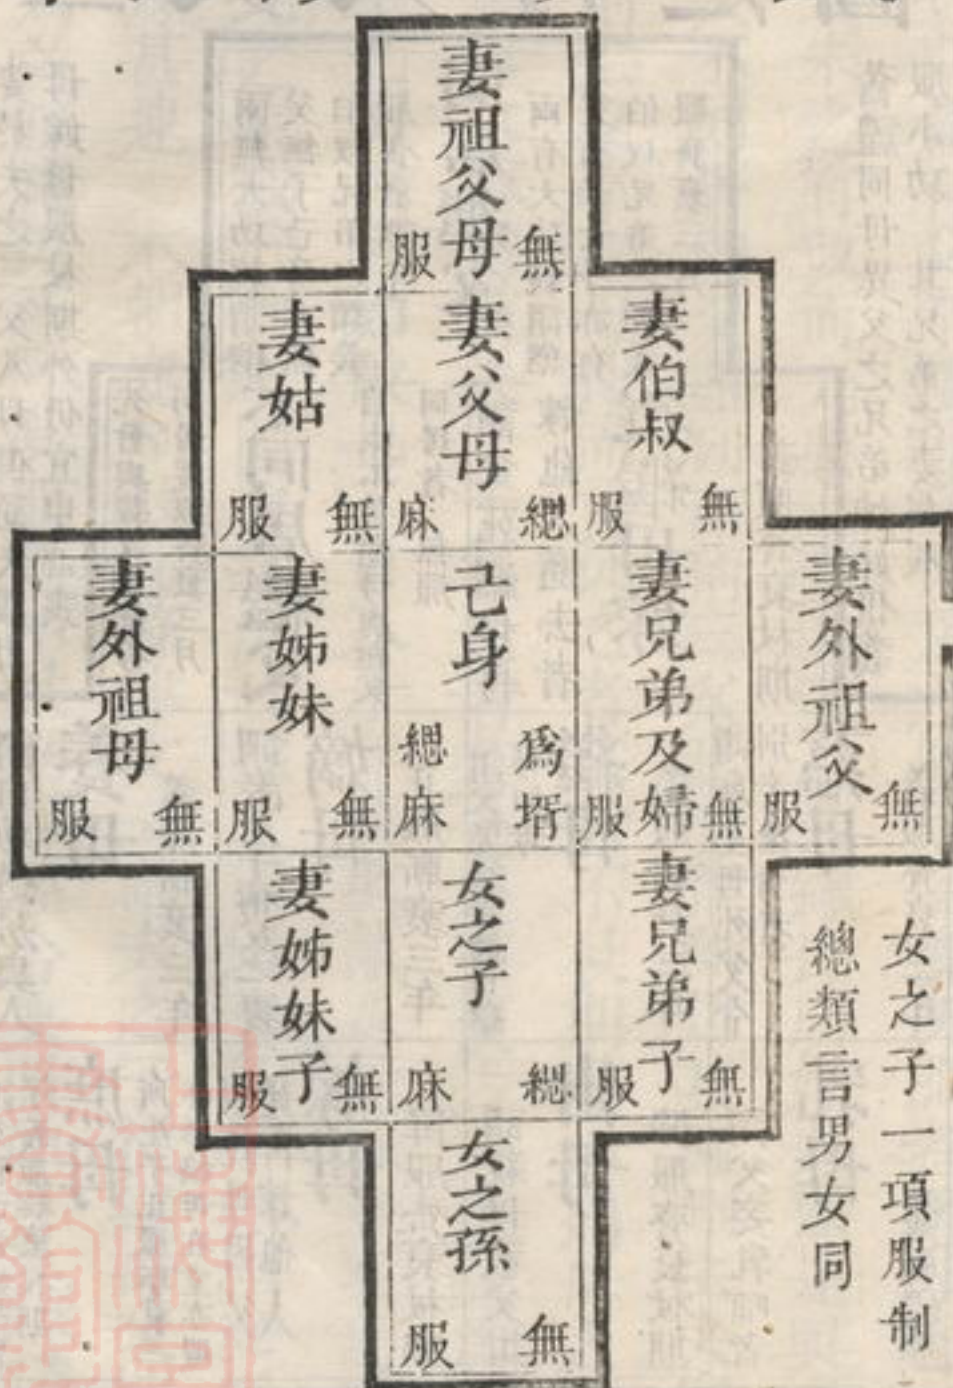 妻祖父母
無服
妻伯叔
無服
妻父母
緦麻
妻姑
無服
妻外祖父
無服
妻兄弟及婦
無服
己身
為壻
緦麻
妻姊妹
無服
妻外祖母
無服
妻兄弟子
無服
女之子
緦麻
妻姊妹子
無服
女之孫
無服
女之子一項服制
總類言男女同